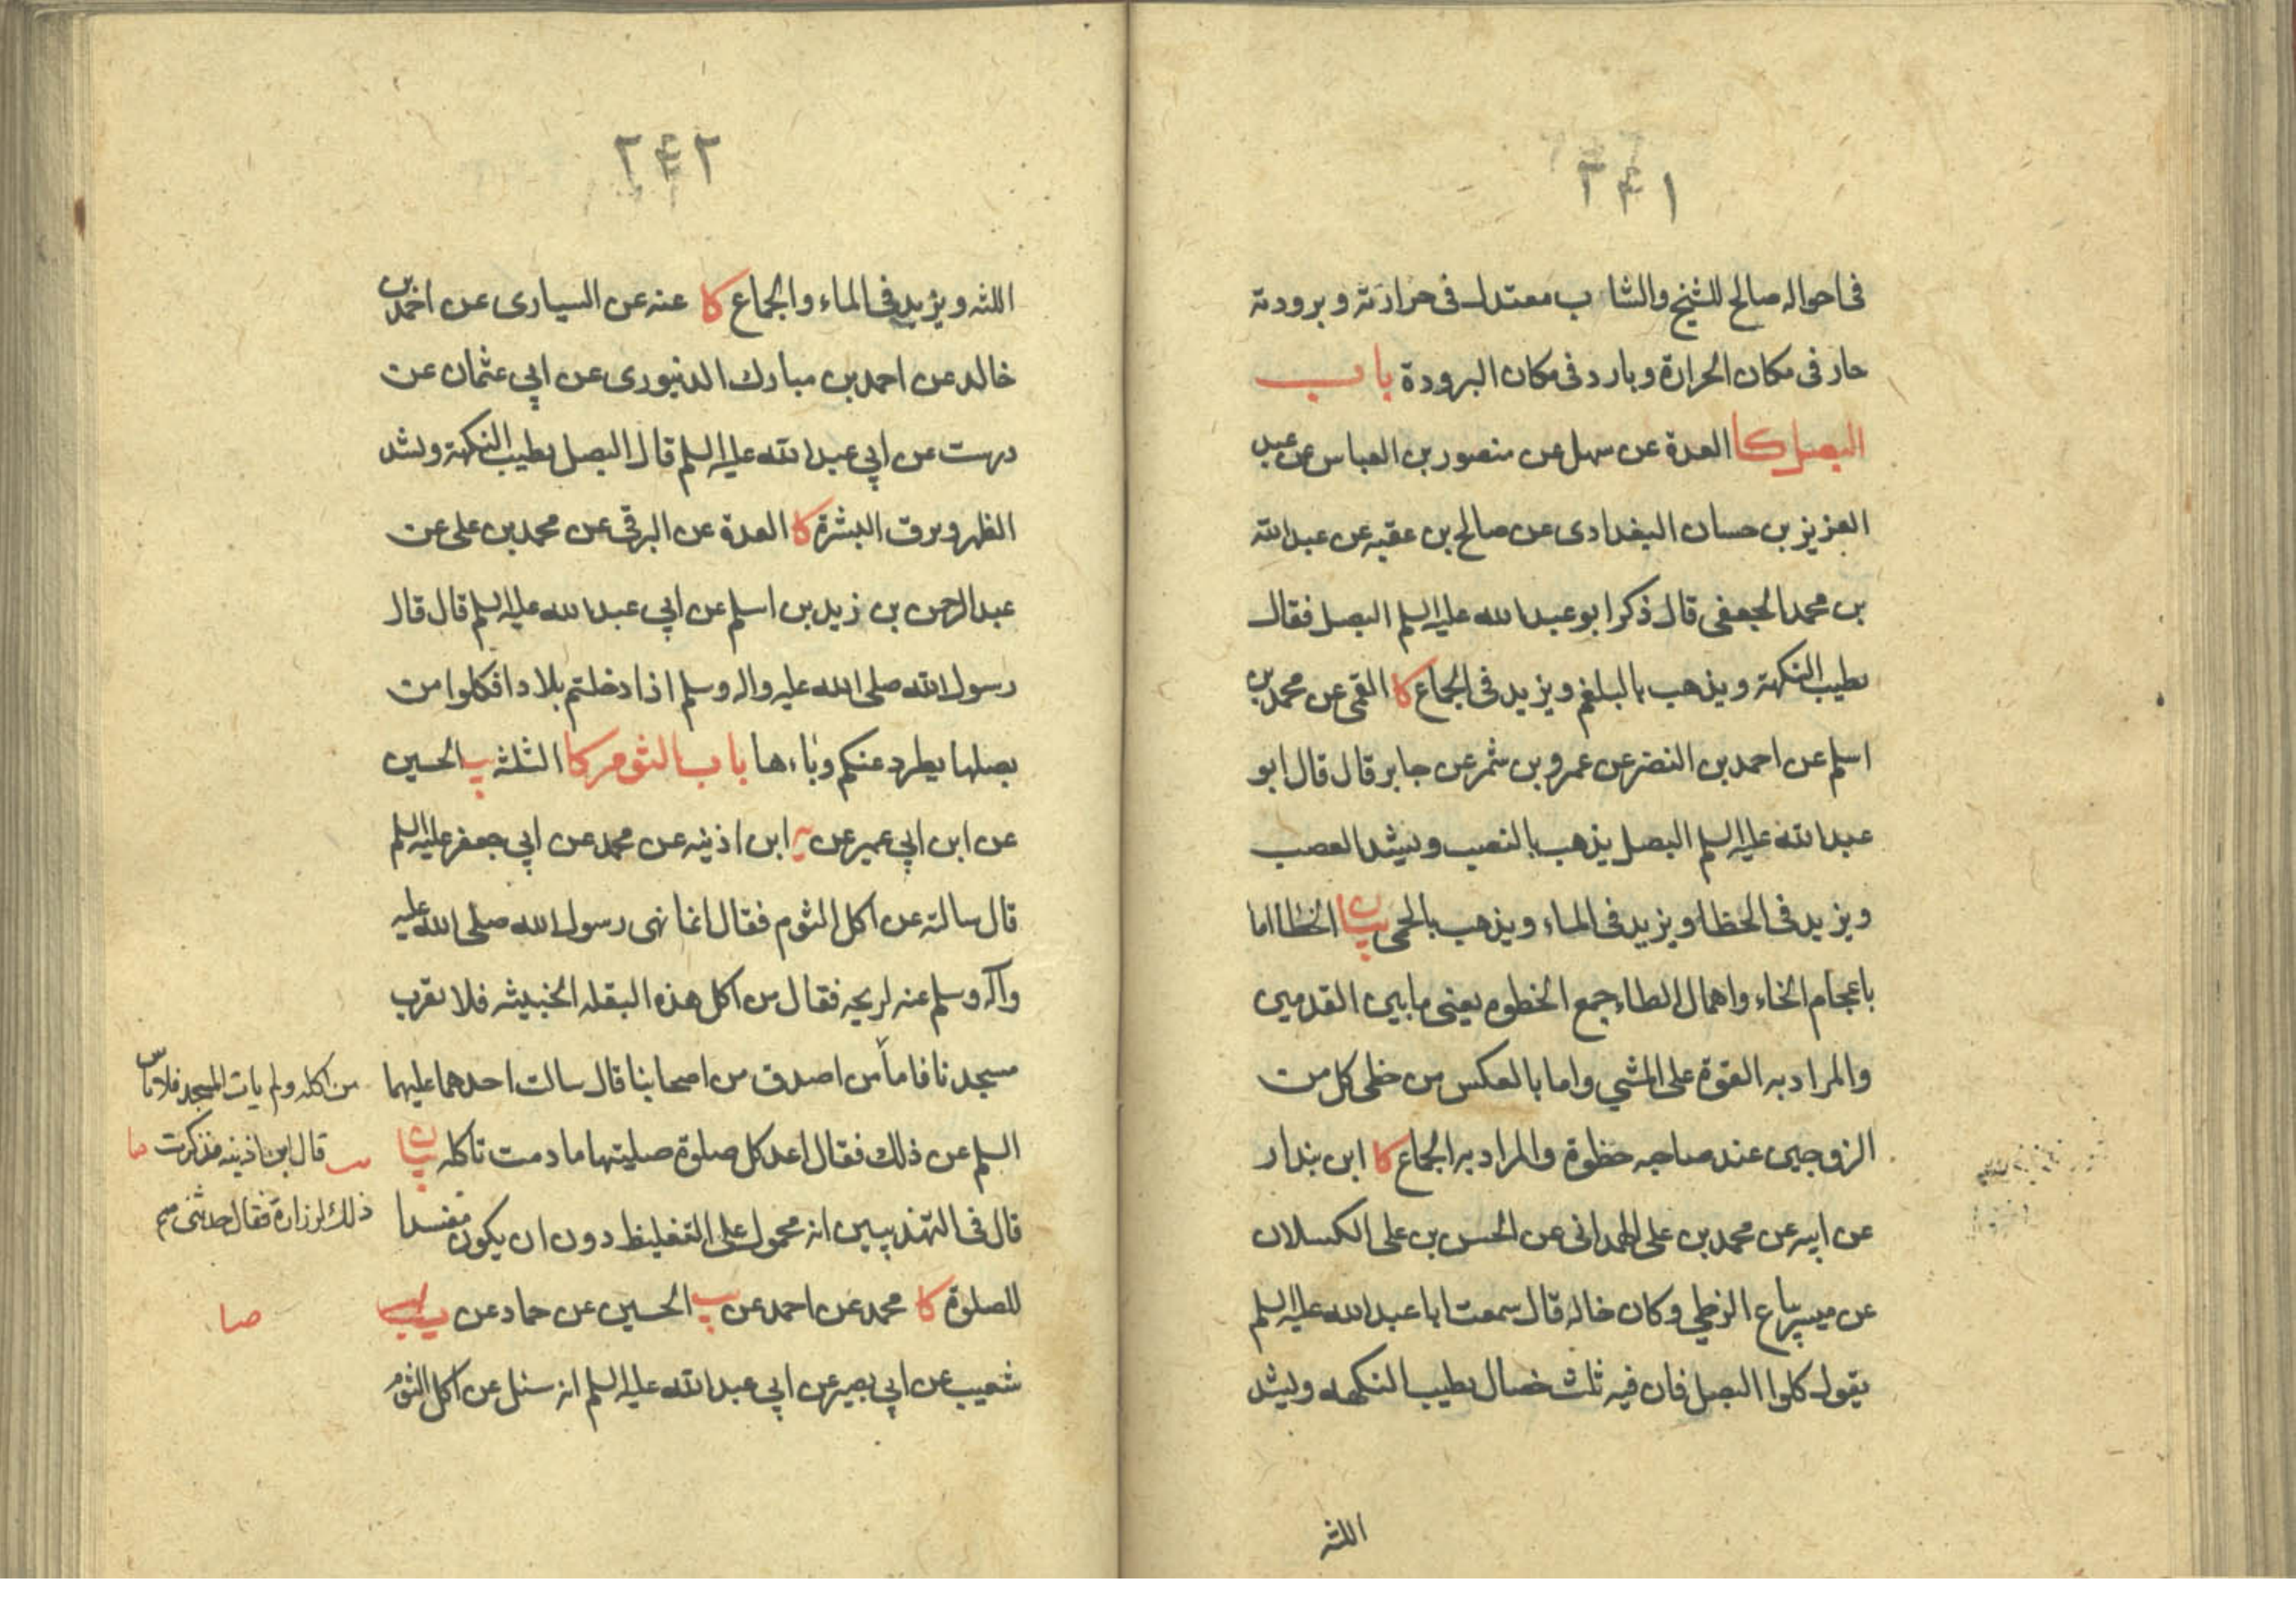 ۲۴۱
فى احواله صالح للشيخ والشاب معتدل فى حرارته و برودته
حار فى مكان الحرارة و بارد فى مكان البرودة باب
البصل كا العدة عن سهل عن منصور بن العباس عن عبد
العزيز بن حسان البغدادى عن صالح بن عقبه عن عبد الله
بن محمد الجعفى قال ذكر ابو عبد الله عليه السلم البصل فقال
يطيب النكهة و يذهب بالبلغم و يزيد فى الجماع كا القمى عن محمد بن
اسلم عن احمد بن النضر عن عمرو بن شمر عن جابر قال قال ابو
عبد الله عليه السلم البصل يذهب بالنصب و يشد العصب
و يزيد فى الخطا و يزيد فى الماء و يذهب بالحمى بيان الخطا اما
باعجام الخاء و اهمال الطاء جمع الخطوه يعنى ما بين القدمين
والمراد به القوة على المشي و اما بالعكس من حظى كل من
الزوجين عند صاحبه حظوة والمراد به الجماع كا ابن بندار
عن ابيه عن محمد بن على الهمدانى عن الحسن بن على الكسلان
عن ميسر بياع الزطي و كان خاله قال سمعت ابا عبد الله عليه السلم
يقول كلوا البصل فان فيه ثلث خصال يطيب النكهه و يشد
اللثه
۲۴۲
اللثه و يزيد فى الماء والجماع كا عنه عن السيارى عن احمد بن
خالد عن احمد بن مبارك الدنيورى عن ابي عثمان عن
درست عن ابي عبد الله عليه السلم قال البصل يطيب النكهة و يشد
الظهر و يرق البشرة كا العدة عن البرقى عن محمد بن على عن
عبد الرحمن بن زيد بن اسلم عن ابي عبد الله عليه السلم قال قال
رسول الله صلى الله عليه واله وسلم اذا دخلتم بلادا فكلوا من
بصلها يطرد عنكم وباءها باب الثوم كا الثلثه يب الحسين
عن ابن ابي عمير عن يه ابن اذينه عن محمد عن ابي جعفر عليه السلم
قال سالته عن اكل الثوم فقال انما نهى رسول الله صلى الله عليه
وآله وسلم عنه لريحه فقال من اكل هذه البقله الخبيثه فلا يقرب
مسجدنا فاما من اصدق من اصحابنا قال سالت احدهما عليهما
السلم عن ذلك فقال اعد كل صلوة صليتها ما دمت تاكله بيان
قال فى التهذيبين انه محمول على التغليظ دون ان يكون مفسدا
للصلوة كا محمد عن احمد عن يب الحسين عن حماد عن
شعيب عن ابي بصير عن ابي عبد الله عليه السلم انه سئل عن اكل الثوم
من اكله و لم يات المسجد فلا باس
قال ابن اذينه فذكرت صا
ذلك لزرارة فقال حدثنى
صا